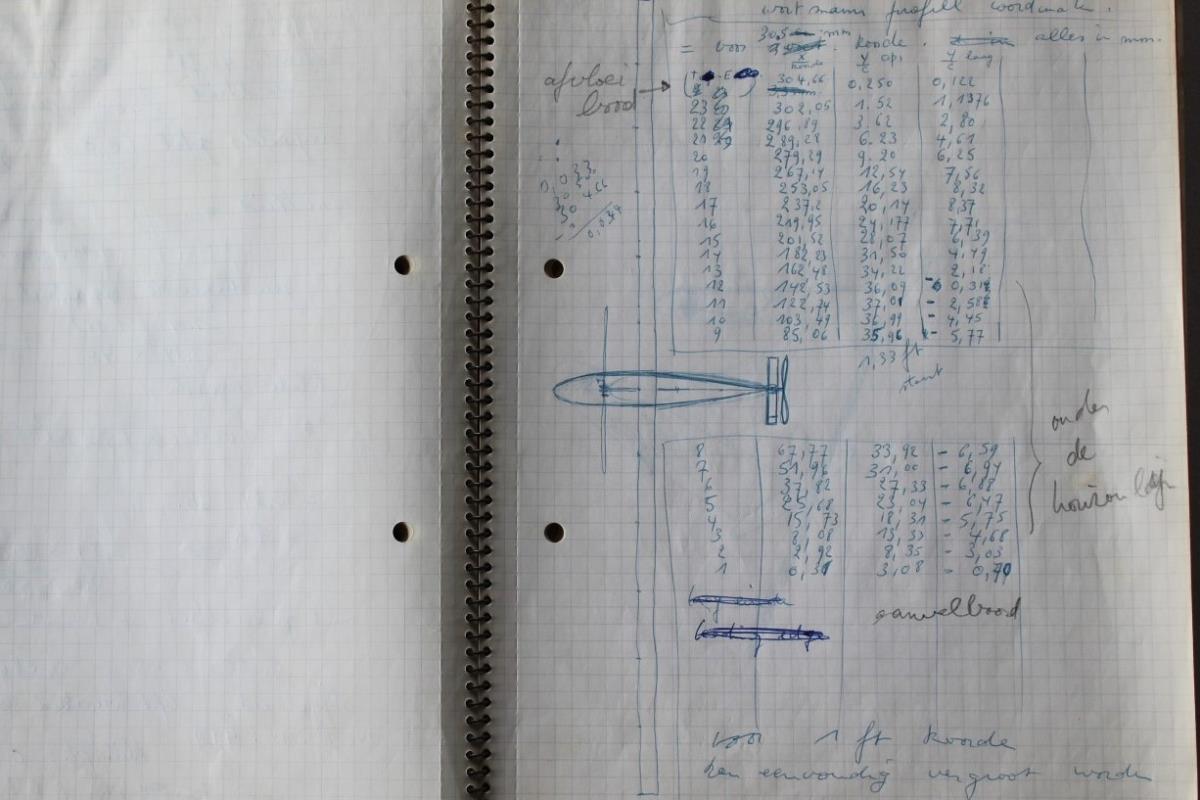 wortmann profill coordinaten.
= voor 30,5 mm koorde. alles in mm.
x koorde y/c op y/c laag
afvloei boord
(T.E.) 304,66 0,250 0,122
23 302,05 1.52 1,1376
22 296,89 3.62 2,80
21 289,28 6.23 4,61
20 279,29 9.20 6,25
19 267,14 12,54 7,56
18 253,05 16,23 8,32
17 237,2 20,14 8,37
16 219,95 24,177 7,71
15 201,52 28,07 6,39
14 182,23 31,50 4,49
13 162,48 34,22 2,18
12 142,53 36,09 - 0,312
11 122,74 37,01 - 2,582
10 103,49 36,99 - 4,45
9 85,06 35,96 - 5,77
1,33 ft
8 67,77 33,92 - 6,59
7 51,96 31,00 - 6,94
6 37,82 27,33 - 6,88
5 25,68 23,04 - 6,47
4 15,73 18,31 - 5,75
3 8,08 13,33 - 4,68
2 2,92 8,35 - 3,03
1 0,31 3,08 - 0,70
onder
de
horizon lijn
aanvalboord
voor 1 ft koorde
kan eenvoudig vergroot worden